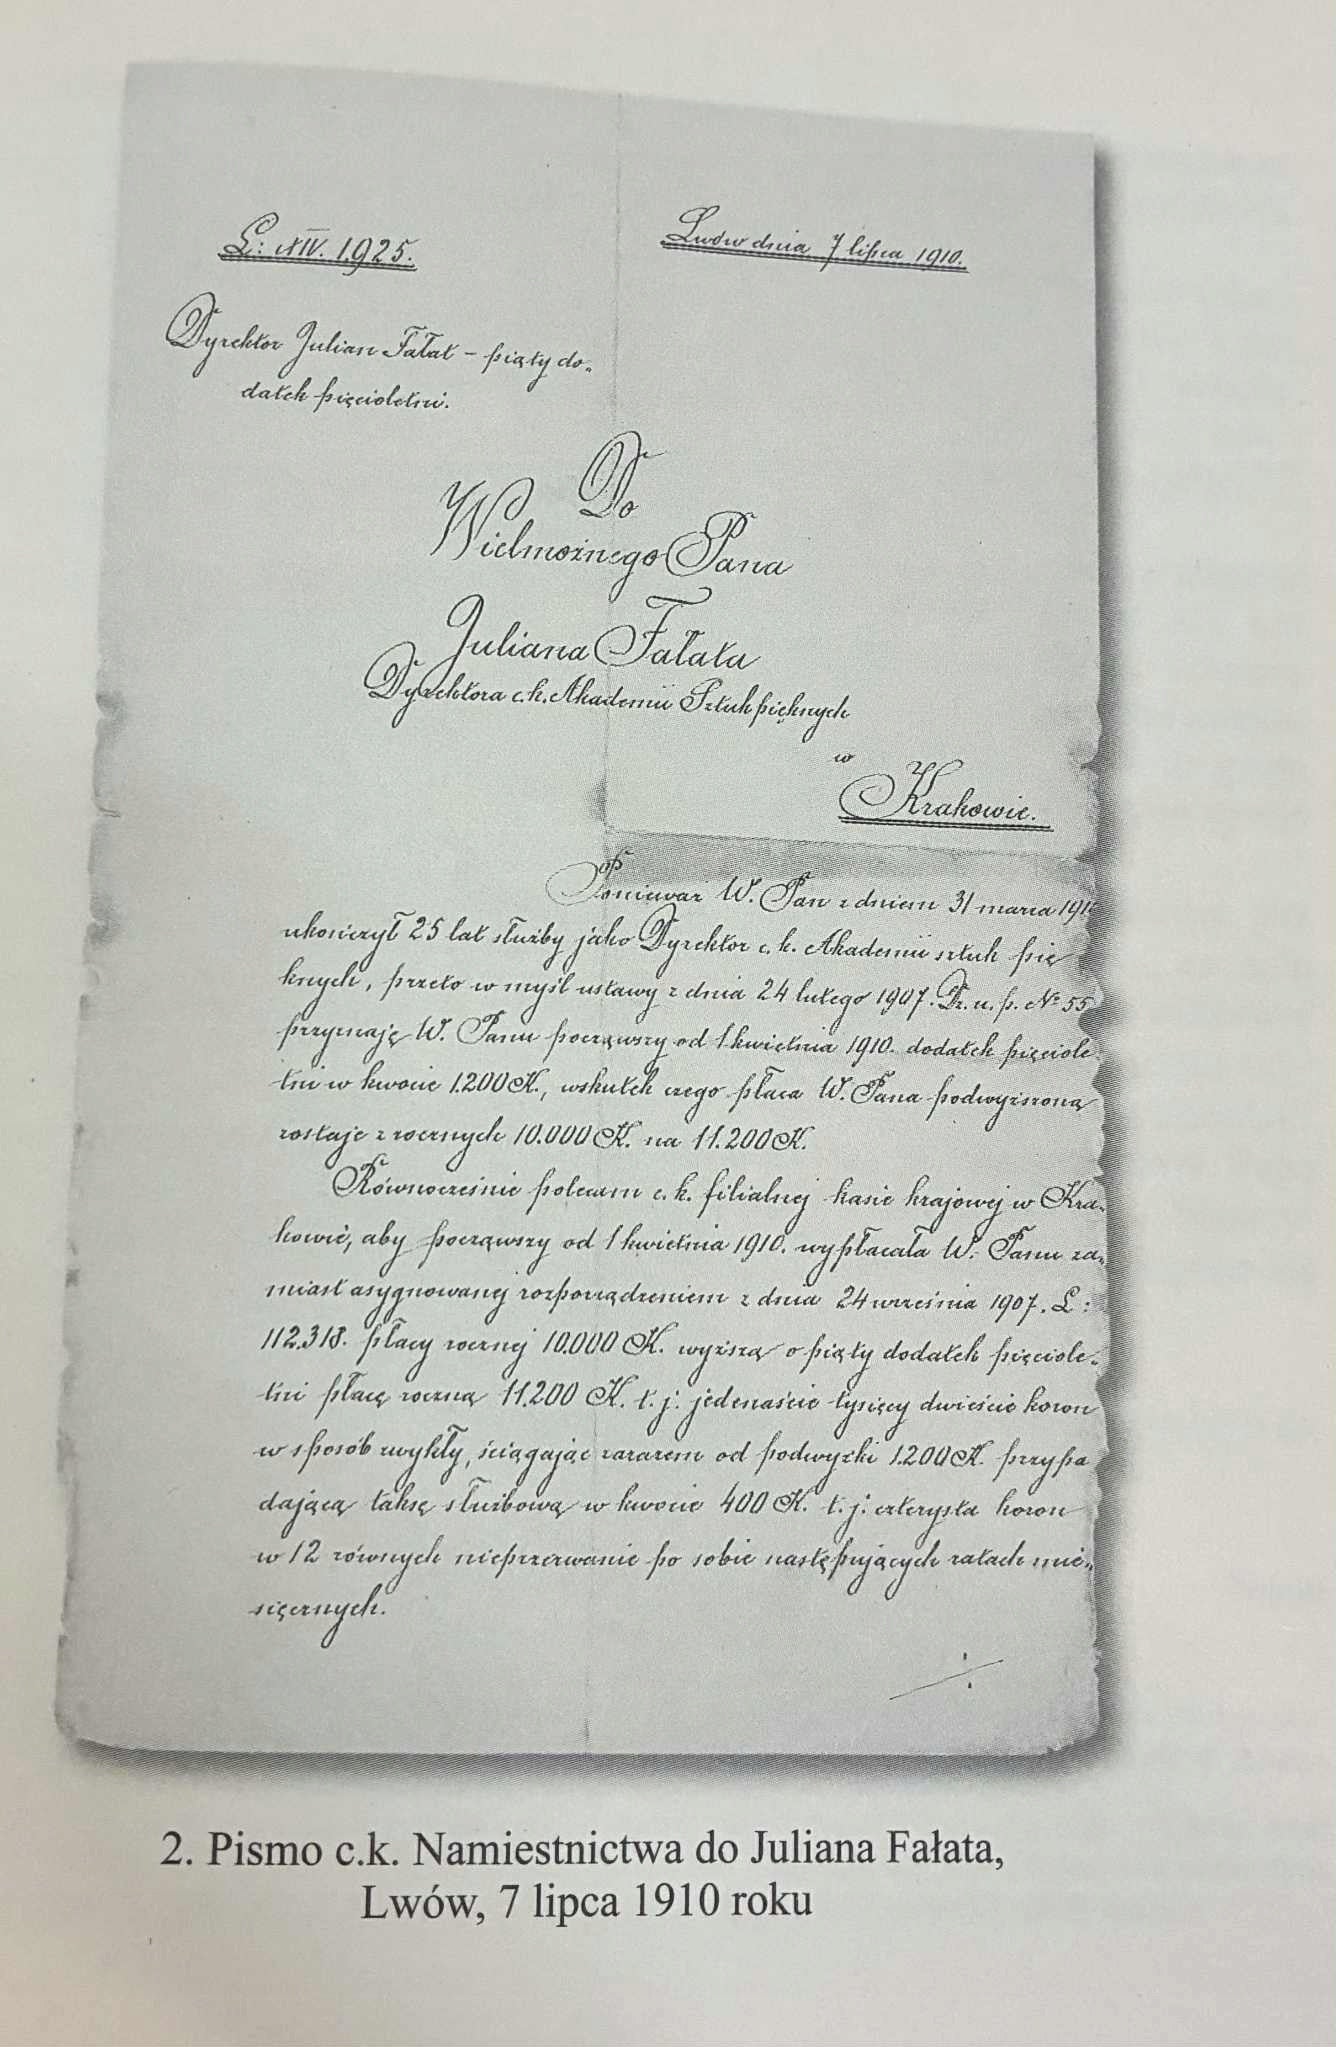 L: XIV. 1.925.
Lwów dnia 7 lipca 1910.
Dyrektor Julian Fałat – piąty do„
datek pięcioletni.
Do
Wielmożnego Pana
Juliana Fałata
Dyrektora c. k. Akademii Sztuk pięknych
w
Krakowie.
Ponieważ W. Pan z dniem 31 marca
ukończył 25 lat służby jako Dyrektor c. k. Akademii sztuk pię
knych, przeto w myśl ustawy z dnia 24 lutego 1907. Dz. u. p. № 55
przyznaję W. Panu począwszy od 1 kwietnia 1910. dodatek pięciole„
tni w kwocie 1.200 K., wskutek czego płaca W. Pana podwyższoną
zostaje z rocznych 10.000 K. na 11.200 K.
Równocześnie polecam c. k. filialnej kasie krajowej w Kra„
kowie, aby począwszy od 1 kwietnia 1910. wypłacała W. Panu za„
miast asygnowanej rozporządzeniem z dnia 24 września 1907. L:
112.318. płacy rocznej 10.000 K. wyższą o piąty dodatek pięciole„
tni płacę roczną 11.200 K. t. j. jedenaście tysięcy dwieście koron
w sposób zwykły, ściągając zarazem od podwyżki 1.200 K. przypa
dającą taksę służbową w kwocie 400 K. t. j. czterysta koron
w 12 równych nieprzerwanie po sobie następujących ratach mie„
sięcznych.
./.
2. Pismo c.k. Namiestnictwa do Juliana Fałata,
Lwów, 7 lipca 1910 roku